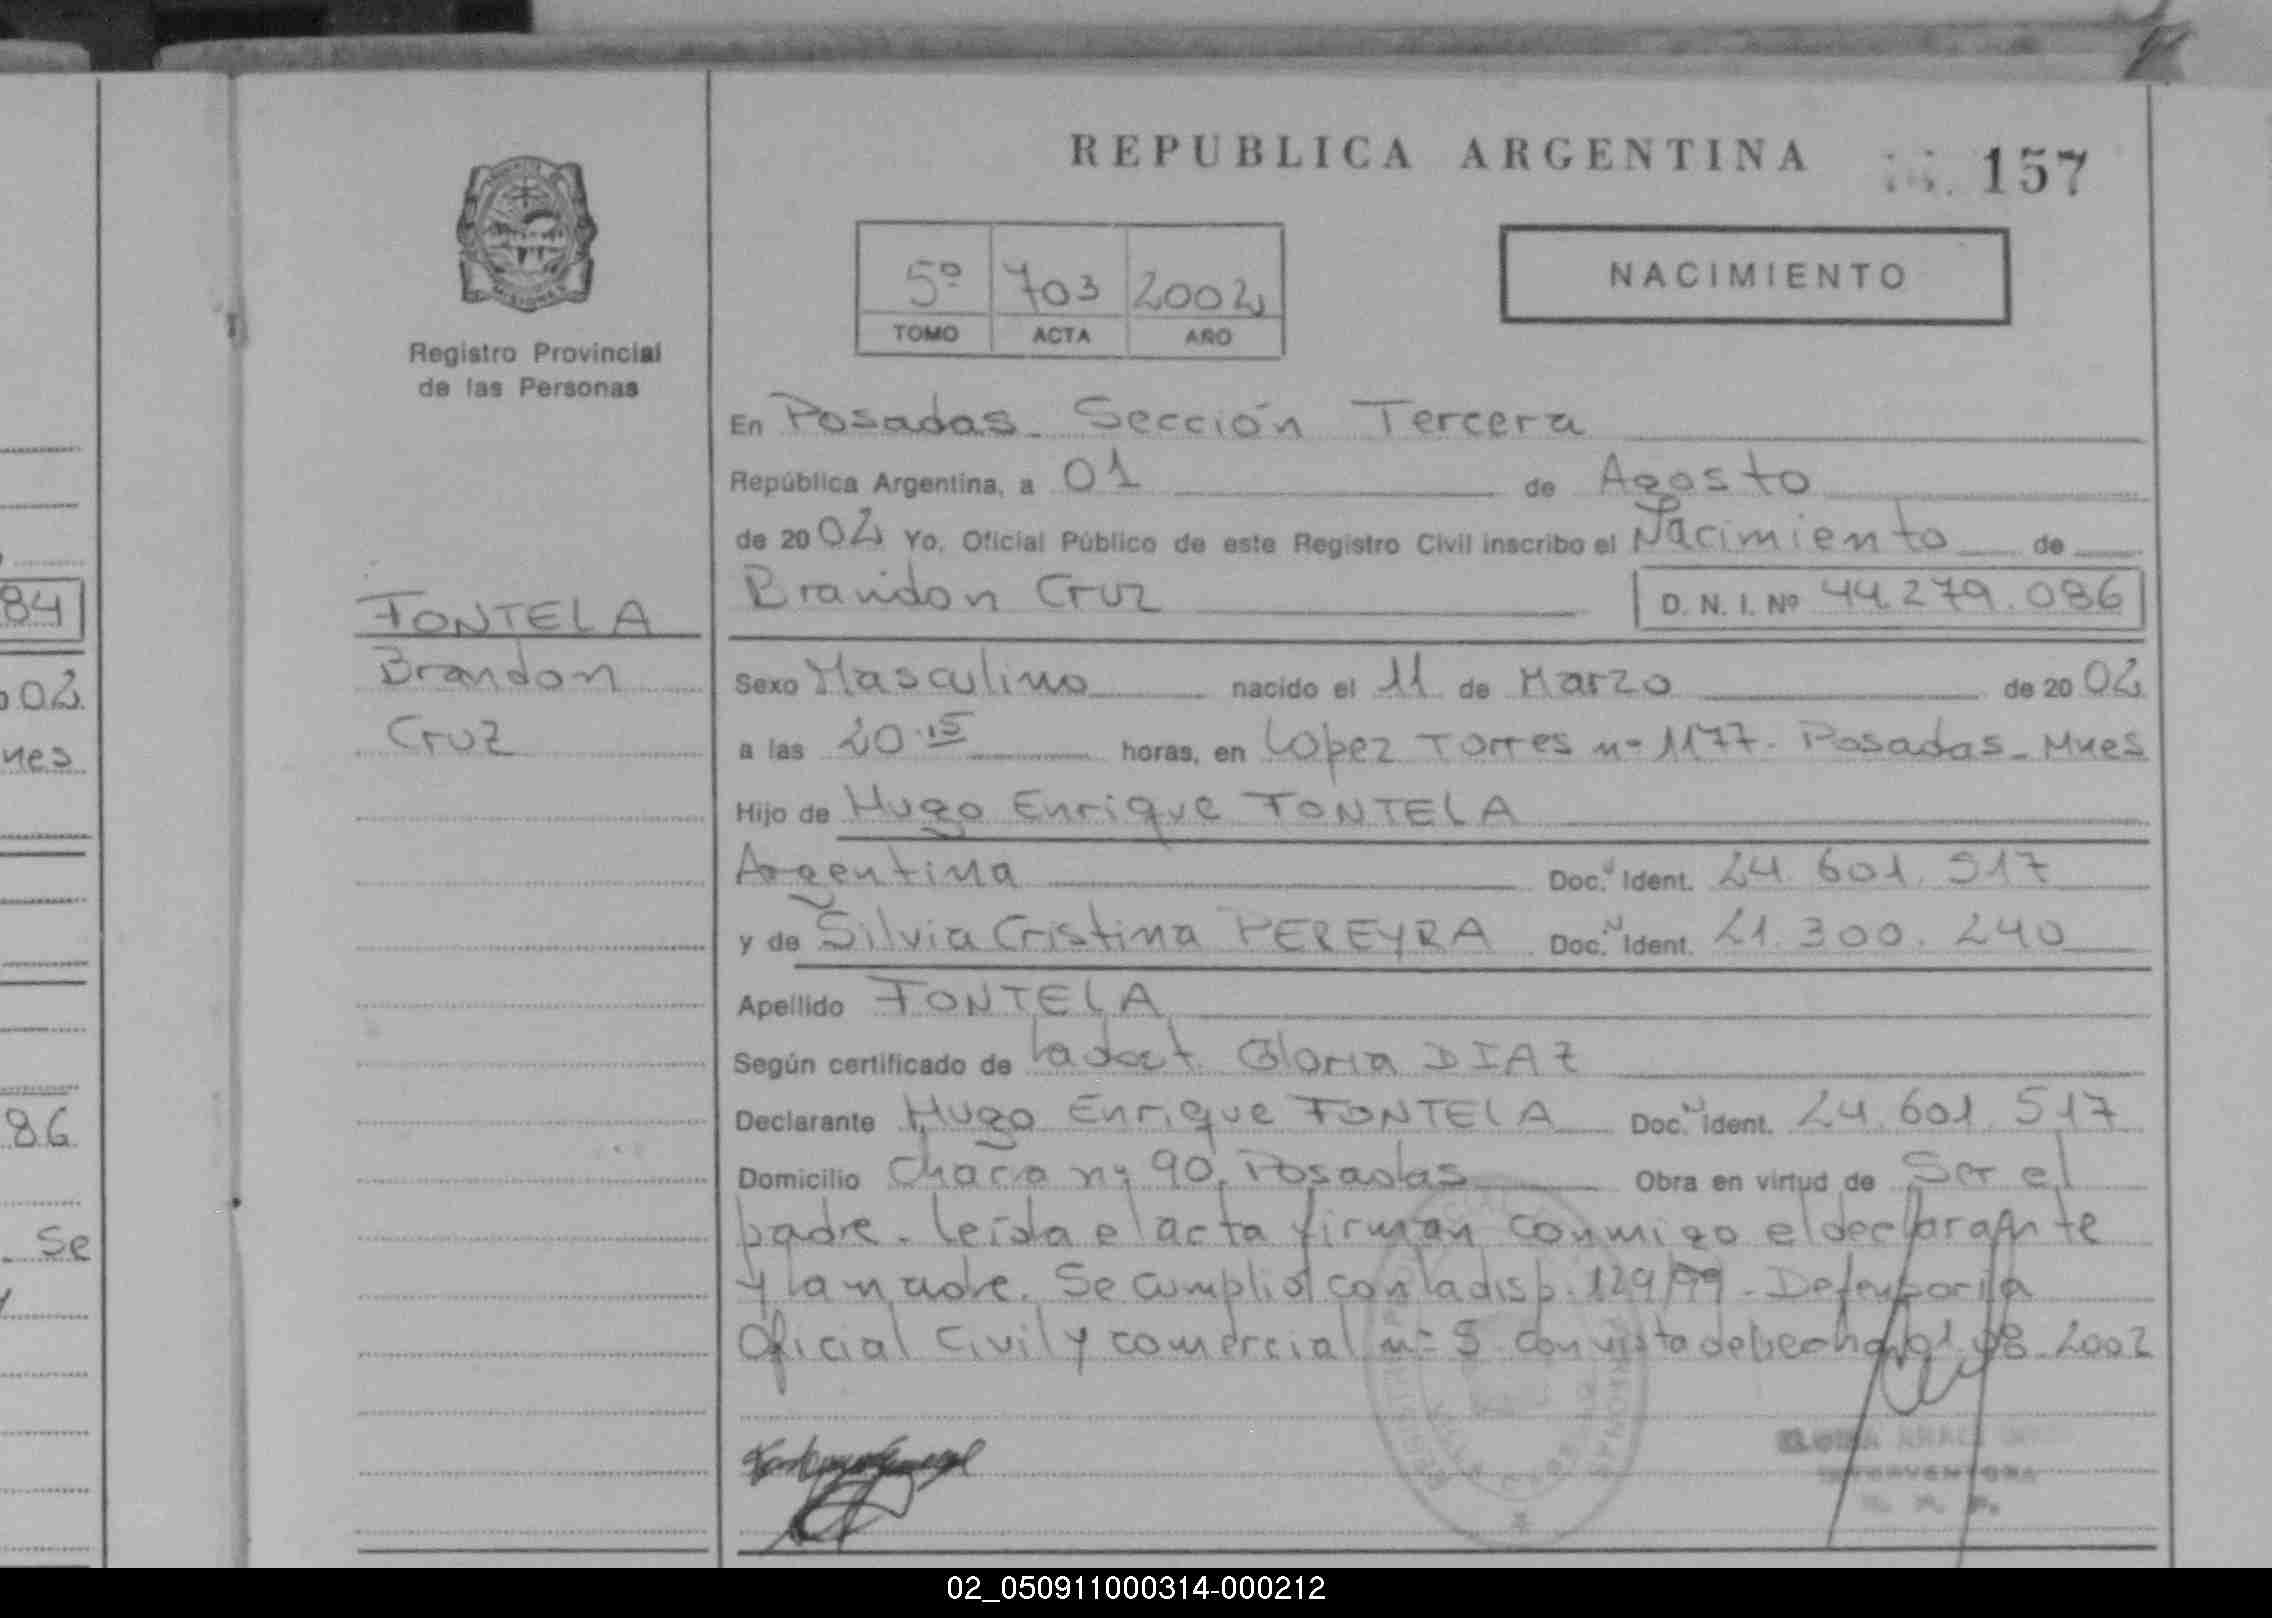 REPUBLICA ARGENTINA
157
5º 703 2002
TOMO ACTA AÑO
NACIMIENTO
MISIONES
Registro Provincial
de las Personas
En Posadas - Sección Tercera
República Argentina, a 01 de Agosto
de 2002 Yo, Oficial Público de este Registro Civil inscribo el Nacimiento de
Brandon Cruz D. N. I. Nº 44.279.086
FONTELA
Brandon
Cruz
Sexo Masculino nacido el 11 de Marzo de 2002
a las 20.15 horas, en Lopez Torres nº 1177. Posadas - Mnes
Hijo de Hugo Enrique FONTELA
Argentina Doc. Ident. 24.601.517
y de Silvia Cristina PEREYRA Doc. Ident. 21.300.240
Apellido FONTELA
Según certificado de la doct. Gloria DIAZ
Declarante Hugo Enrique FONTELA Doc. Ident. 24.601.517
Domicilio Chacra nº 90, Posadas Obra en virtud de Ser el
padre. leída el acta firman conmigo el declarante
y la madre. Se cumplió con la disp. 129/99 - Defensoria
Oficial Civil y comercial nº 5 con vista de fecha 01.08.2002
INTERVENTORA
84
02
nes
86
Se
y
02_050911000314-000212